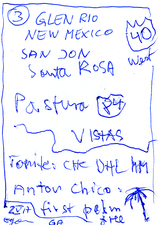 ③ GLEN RIO
NEW MEXICO 40
West
SAN JON
Santa ROSA
Pastura 84
VISTAS
Anton Chico:
first palm
tree